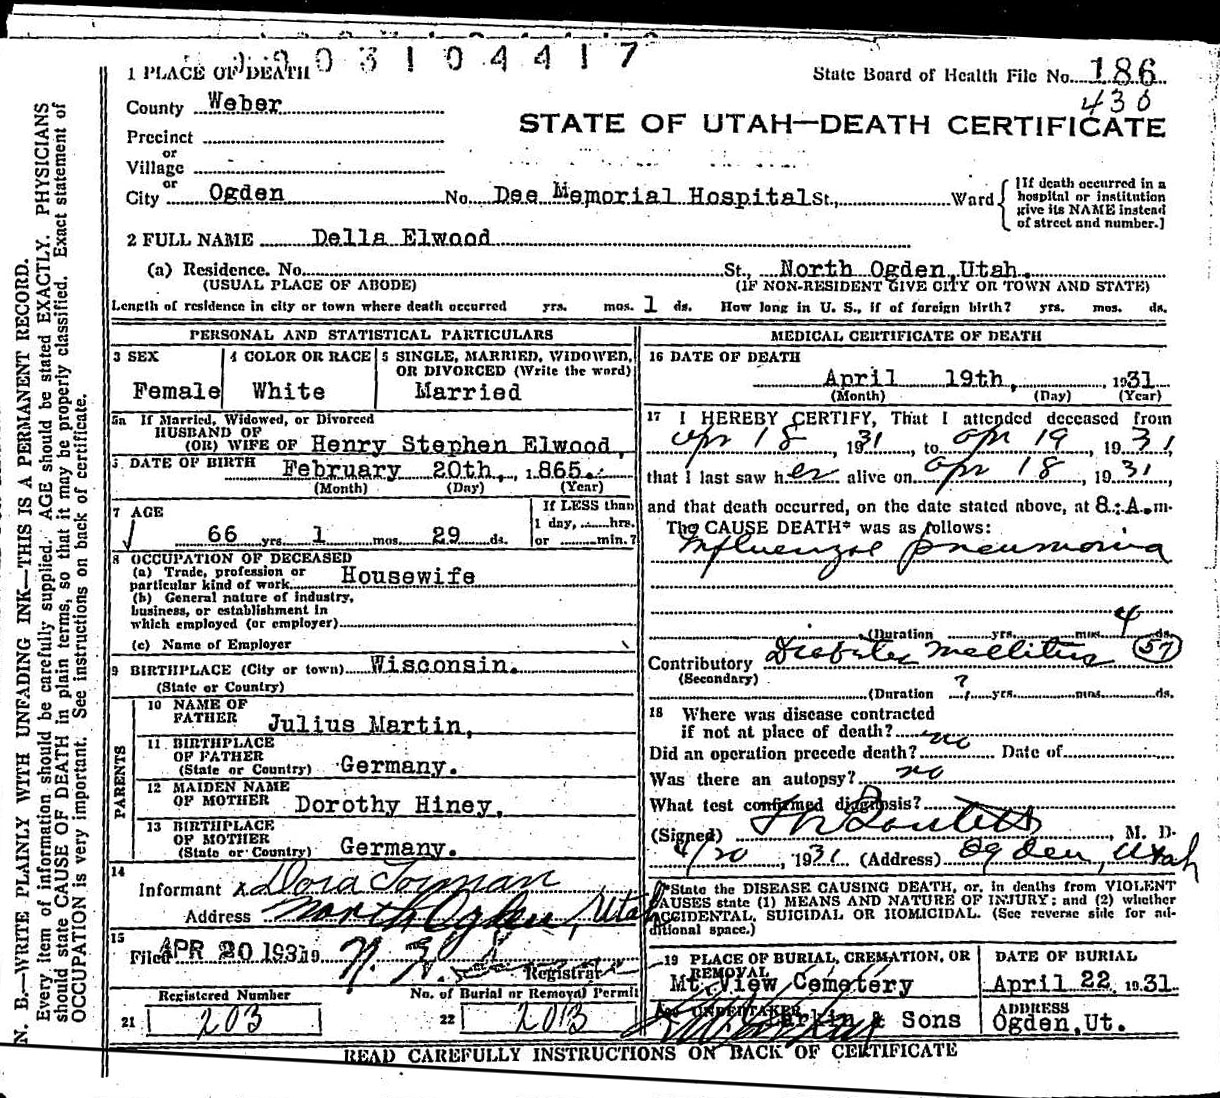 0 3 1 0 4 4 1 7
1 PLACE OF DEATH
State Board of Health File No. 186
430
County Weber
STATE OF UTAH—DEATH CERTIFICATE
Precinct
or
Village
or
City Ogden No. Dee Memorial Hospital St., Ward
[If death occurred in a hospital or institution give its NAME instead of street and number.]
2 FULL NAME Della Elwood
(a) Residence. No. St., North Ogden, Utah.
(USUAL PLACE OF ABODE) (IF NON-RESIDENT GIVE CITY OR TOWN AND STATE)
Length of residence in city or town where death occurred yrs. mos. 1 ds. How long in U. S., if of foreign birth? yrs. mos. ds.
PERSONAL AND STATISTICAL PARTICULARS
3 SEX
Female
4 COLOR OR RACE
White
5 SINGLE, MARRIED, WIDOWED, OR DIVORCED (Write the word)
Married
5a If Married, Widowed, or Divorced
HUSBAND OF
(OR) WIFE OF Henry Stephen Elwood,
DATE OF BIRTH February 20th, 1865.
(Month) (Day) (Year)
7 AGE
66 yrs. 1 mos. 29 ds.
If LESS than
1 day, hrs.
or min.?
8 OCCUPATION OF DECEASED
(a) Trade, profession or
particular kind of work Housewife
(b) General nature of industry,
business, or establishment in
which employed (or employer)
(c) Name of Employer
9 BIRTHPLACE (City or town) Wisconsin.
(State or Country)
PARENTS
10 NAME OF
FATHER Julius Martin,
11 BIRTHPLACE
OF FATHER
(State or Country) Germany.
12 MAIDEN NAME
OF MOTHER Dorothy Hiney,
13 BIRTHPLACE
OF MOTHER
(State or Country) Germany.
14
Informant Dora Toman
Address North Ogden, Utah
15
Filed APR 20 1931 19
Registrar
Registered Number
No. of Burial or Removal Permit
21 203
22 203
MEDICAL CERTIFICATE OF DEATH
16 DATE OF DEATH
April 19th, 1931
(Month) (Day) (Year)
17 I HEREBY CERTIFY, That I attended deceased from
Apr 18 1931, to Apr 19 1931,
that I last saw her alive on Apr 18, 1931,
and that death occurred, on the date stated above, at 8.:A.m.
The CAUSE DEATH* was as follows:
Influenzal pneumonia
(Duration yrs. mos. 4 ds.
Contributory Diabetes Mellitus 57
(Secondary)
(Duration ? yrs. mos. ds.
18 Where was disease contracted
if not at place of death?
Did an operation precede death? no Date of
Was there an autopsy? no
What test confirmed diagnosis?
(Signed) , M. D.
4/20, 1931 (Address) Ogden, Utah
*State the DISEASE CAUSING DEATH, or, in deaths from VIOLENT
CAUSES state (1) MEANS AND NATURE OF INJURY; and (2) whether
ACCIDENTAL, SUICIDAL OR HOMICIDAL. (See reverse side for ad-
ditional space.)
19 PLACE OF BURIAL, CREMATION, OR
REMOVAL
Mt. View Cemetery
DATE OF BURIAL
April 22 1931.
UNDERTAKER
Larkin & Sons
ADDRESS
Ogden, Ut.
READ CAREFULLY INSTRUCTIONS ON BACK OF CERTIFICATE
N. B.—WRITE PLAINLY WITH UNFADING INK—THIS IS A PERMANENT RECORD.
Every item of information should be carefully supplied. AGE should be stated EXACTLY. PHYSICIANS
should state CAUSE OF DEATH in plain terms, so that it may be properly classified. Exact statement of
OCCUPATION is very important. See instructions on back of certificate.